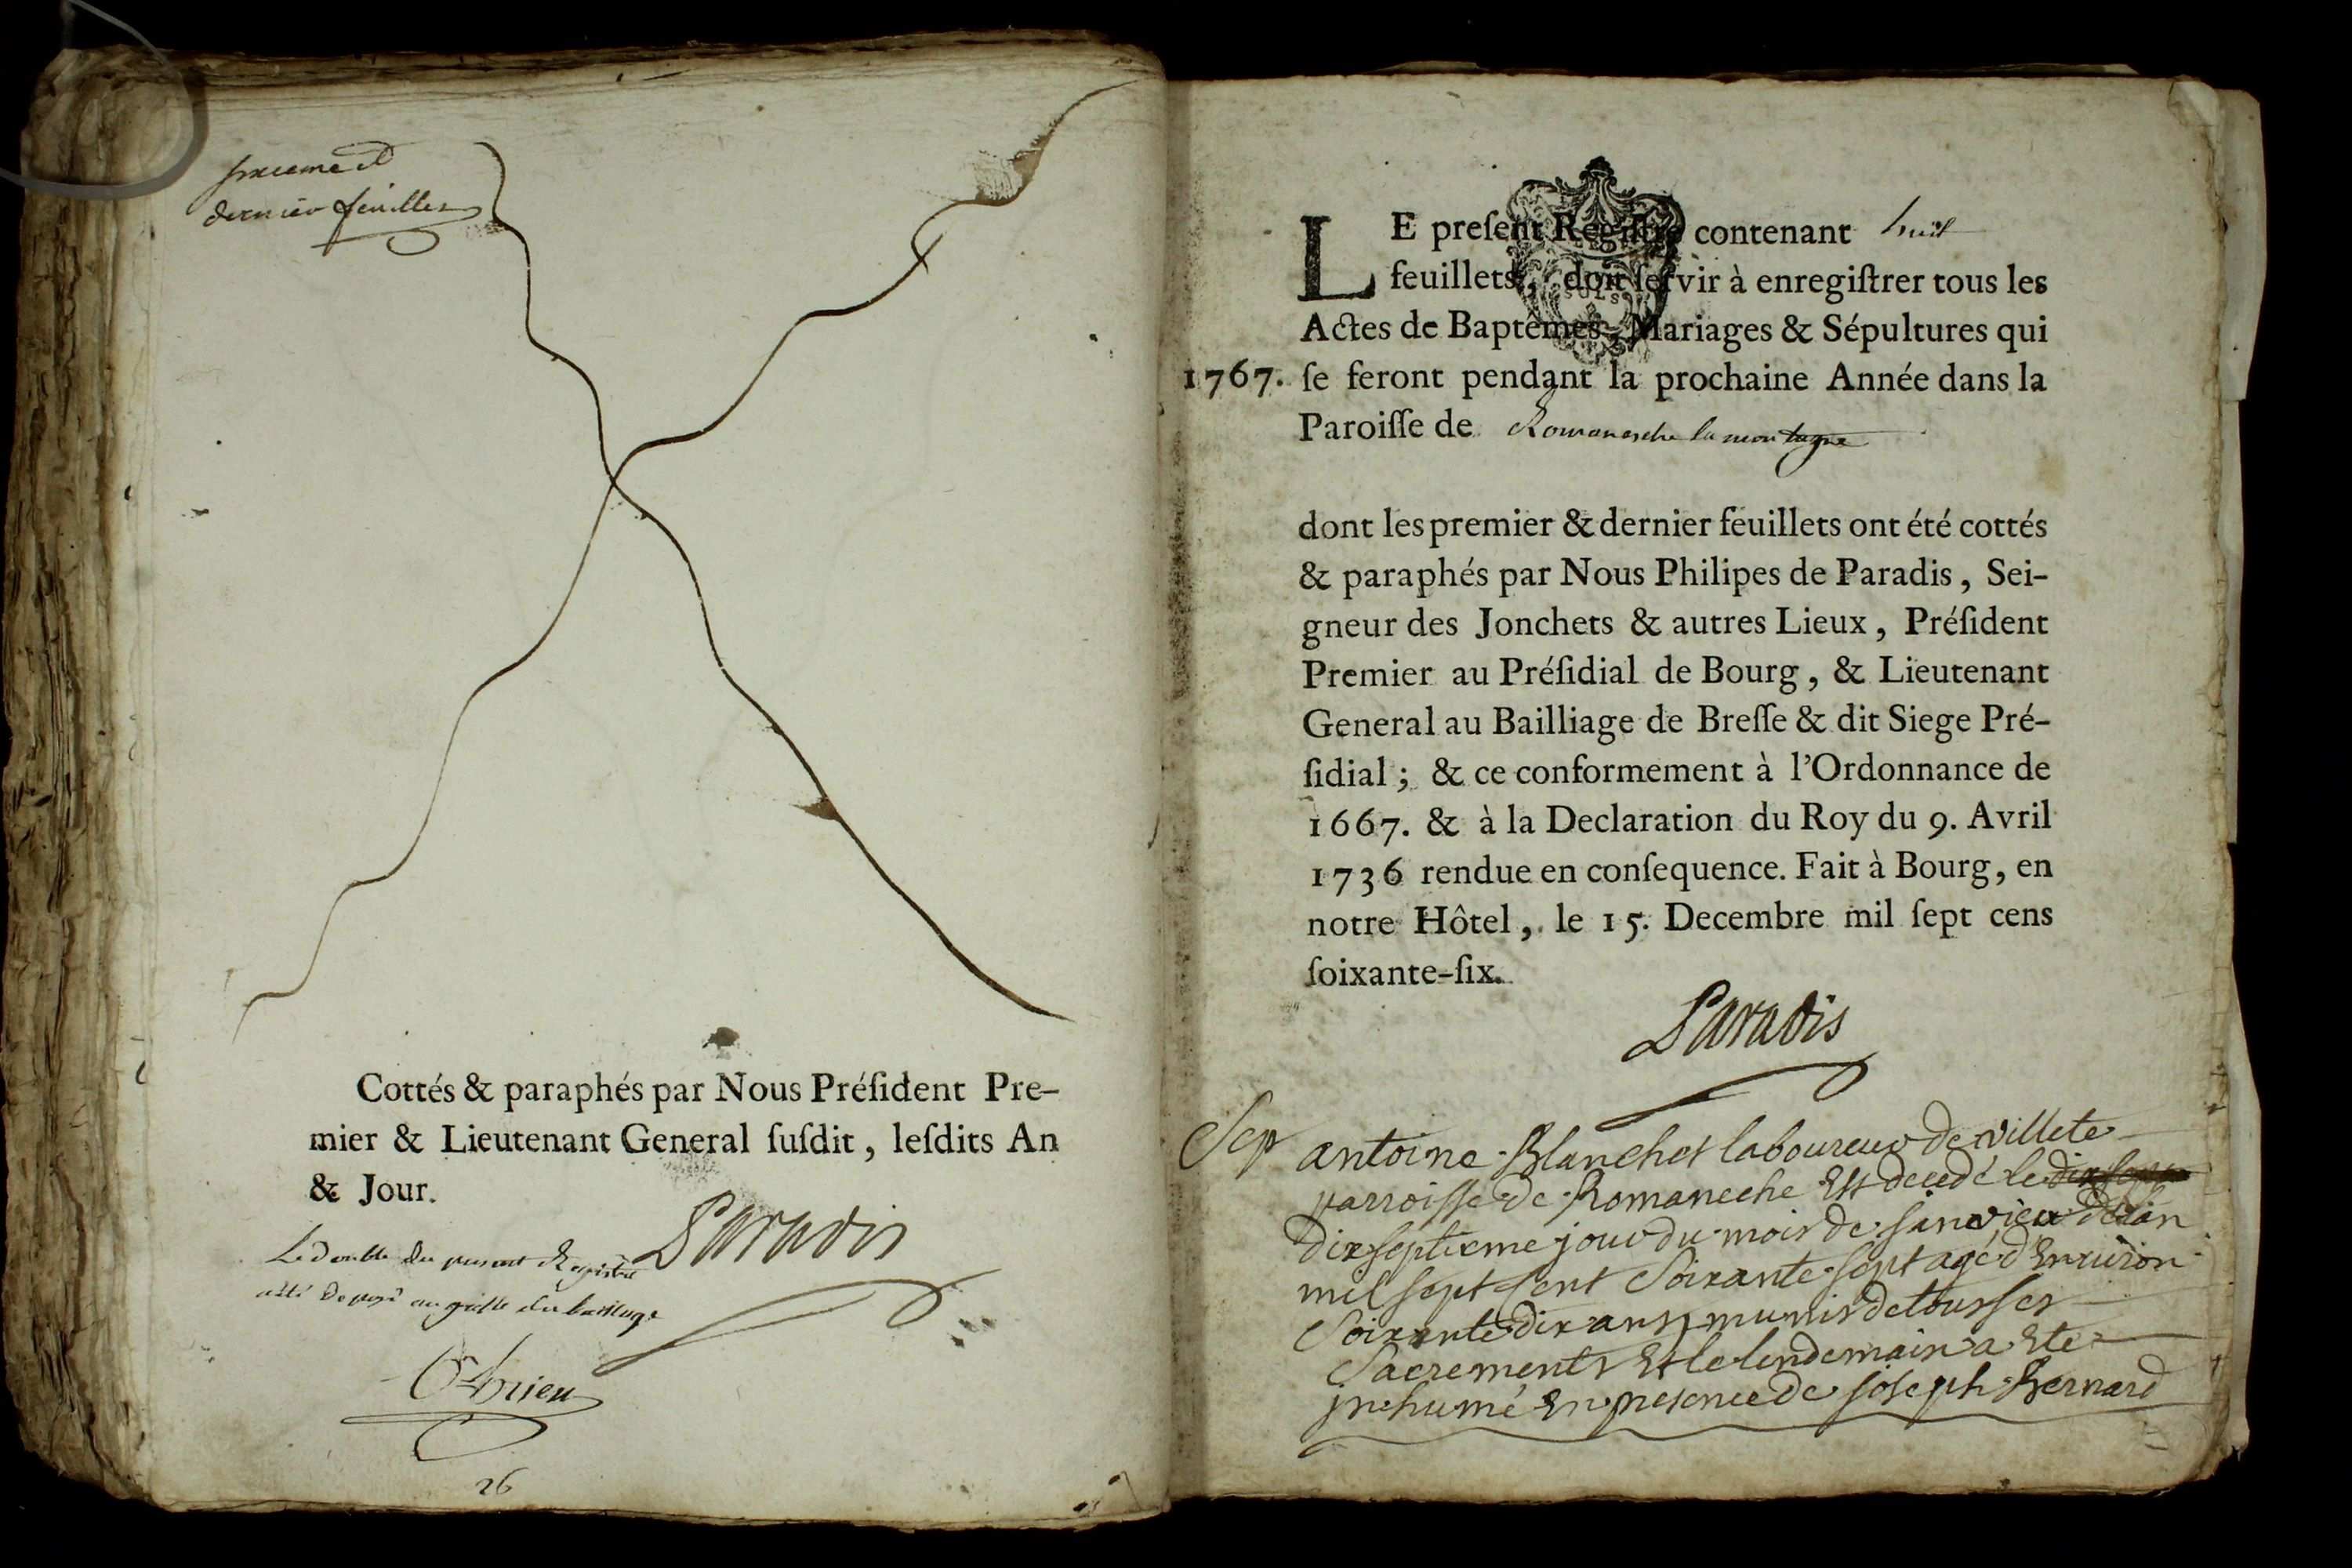 dernier feuillet
Cottés & paraphés par Nous Préſident Pre-
mier & Lieutenant General ſuſdit, leſdits An
& Jour.
Paradis
Le double du present Registre
a été deposé au greffe du bailliage
26
LE preſent Regiſtre contenant huit
feuillets, doit ſervir à enregiſtrer tous les
Actes de Baptêmes, Mariages & Sépultures qui
1767. ſe feront pendant la prochaine Année dans la
Paroiſſe de Romanesche la montagne
dont les premier & dernier feuillets ont été cottés
& paraphés par Nous Philipes de Paradis, Sei-
gneur des Jonchets & autres Lieux, Préſident
Premier au Préſidial de Bourg, & Lieutenant
General au Bailliage de Breſſe & dit Siege Pré-
ſidial; & ce conformement à l'Ordonnance de
1667. & à la Declaration du Roy du 9. Avril
1736 rendue en conſequence. Fait à Bourg, en
notre Hôtel, le 15. Decembre mil ſept cens
ſoixante-ſix.
Paradis
Sep antoine Blanchet laboureur de villete
parroisse de Romaneche Est decedé le
dix septieme jour du mois de janvier de l'an
mil sept sent Soixante sept agé d'Environ
Soixante dix ans munis de tous ses
Sacrements Et le lendemain a Ete
inhumé En presence de joseph Bernard